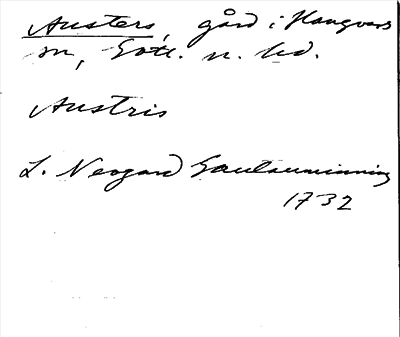 Austers, gård i Hangvars
sn, Gotl. n. hd.
Austris
L. Neogard Gautauminning
1732